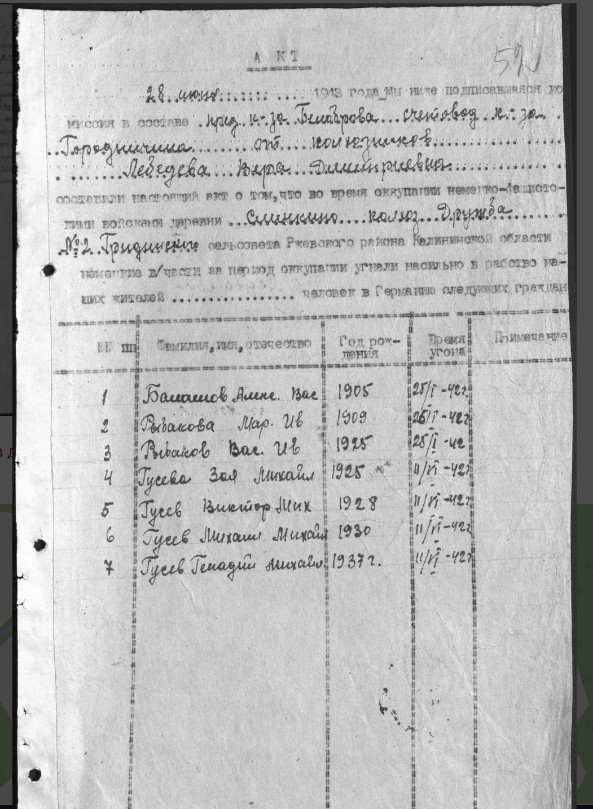 52
АКТ
28 июня 1943 года мы ниже подписавшаяся ко
миссия в составе пред к-за счетовод к-за
от колхозников
Лебедева Вера Дмитриевна
составили настоящий акт о том, что во время оккупации немецко-фашистс-
кими войсками деревни колхоз Дружба
№2 сельсовета Ржевского района Калининской области
немецкие в/части за период оккупации угнали насильно в рабство на-
ших жителей человек в Германию следующих граждан
№№ пп Фамилия, имя, отечество Год рож-дения Время угона Примечание
1 Балашов Алек. Вас 1905 25/I -42г
2 Рыбакова Мар. Ив 1909 -42г
3 Рыбаков Вас. Ив 1925 25/I -42
4 Гусева Зоя Михайл 1925 11/VI -42г
5 Гусев Виктор Мих 1928 11/VI -42г
6 Гусев Михаил Михайл 1930 11/VI -42г
7 Гусев Генадий Михайл 1937г. 11/VI -42г